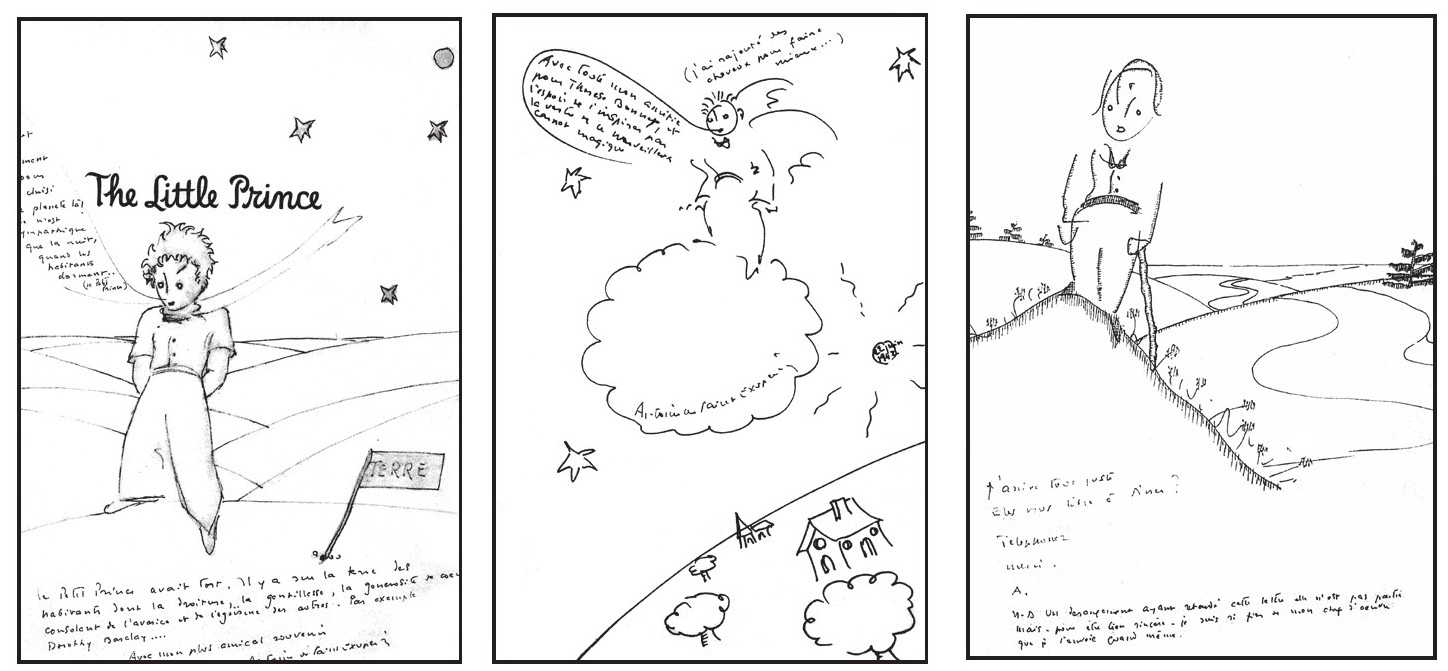 ment
planète là)
n'est
sympathique
que la nuit,
quand les
habitants
dorment...
(le Petit
Prince)
The Little Prince
TERRE
le Petit Prince avait tort. Il y a sur la terre des
habitants dont la droiture, la gentillesse, la générosité de cœur
consolent de l'avarice et de l'égoïsme des autres. Par exemple
Dorothy Barclay....
Avec mon plus amical souvenir
Antoine de Saint Exupéry
(j'ai rajouté des
cheveux pour faire
mieux...)
Avec toute mon amitié
pour Thérèse Bonney, et
l'espoir de l'inspirer par
la vertu de ce merveilleux
carnet magique
Antoine de Saint Exupéry
J'arrive tout juste
Etes vous libre à diner ?
Téléphonez
merci.
A.
N.B. Un dérangement ayant retardé cette lettre elle n'est pas partie
mais pour être bien sincère je suis si fier de mon chef d'œuvre
que je l'envoie quand même.